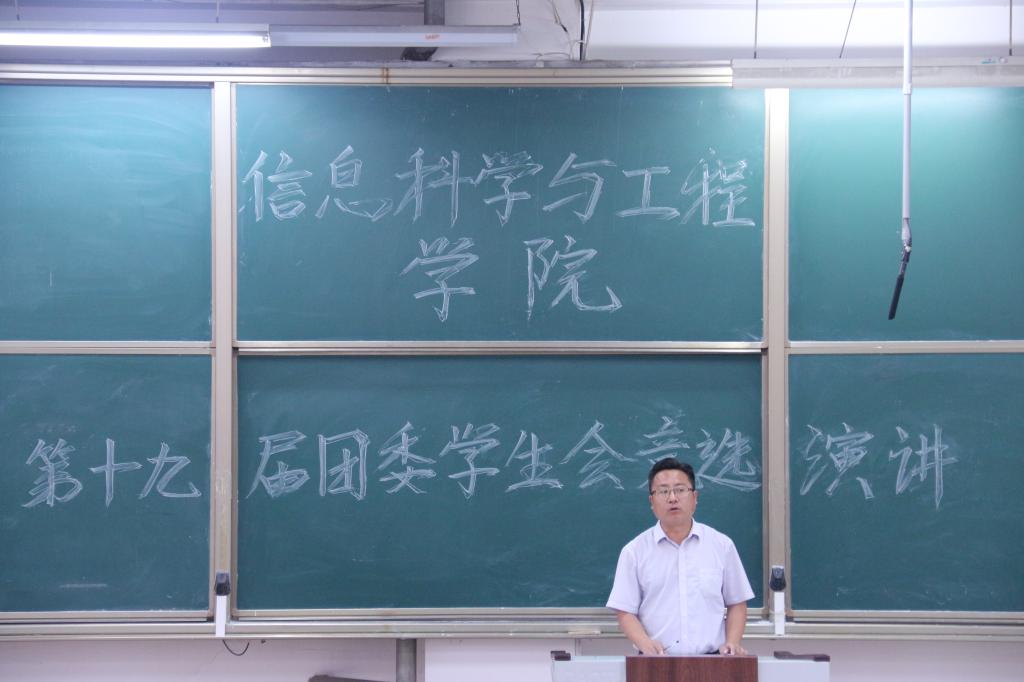 信息科学与工程
学院
第十九届团委学生会竞选演讲